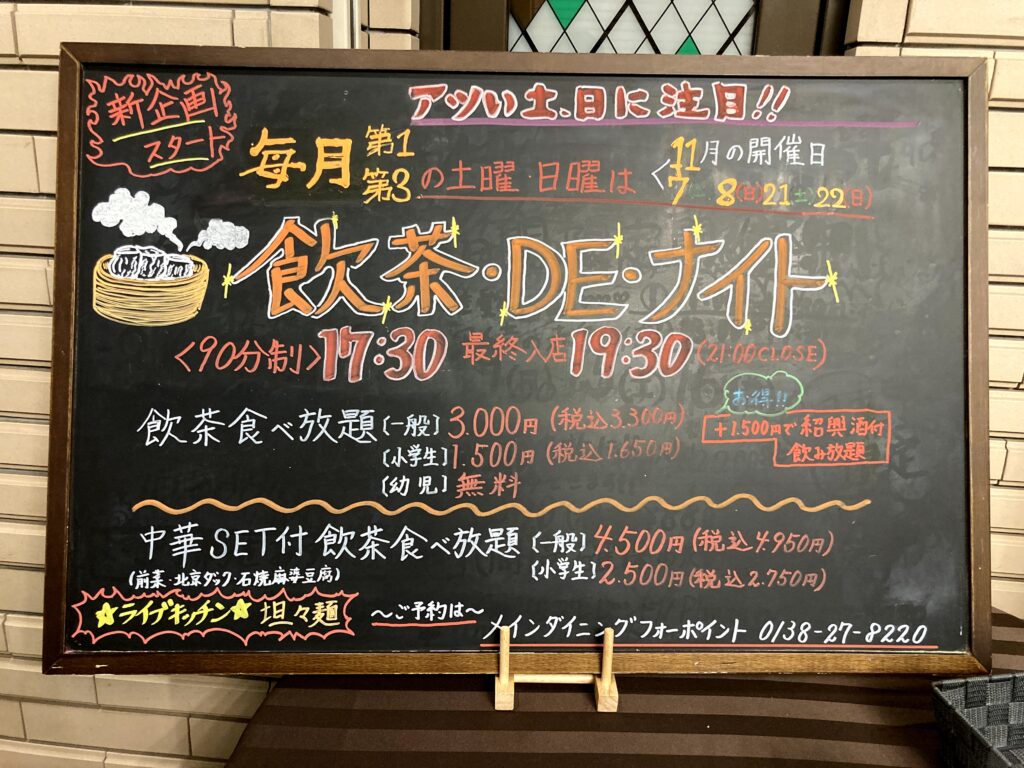 新企画
スタート
アツい土、日に注目!!
毎月 第1 第3 の土曜・日曜は
11月の開催日
7 8(日) 21 土 22(日)
飲茶・DE・ナイト
<90分制> 17:30 最終入店 19:30 (21:00CLOSE)
飲茶食べ放題 [一般] 3.000円 (税込3.300円)
[小学生] 1.500円 (税込1.650円)
[幼児] 無料
お得!!
+1.500円で紹興酒付
飲み放題
中華SET付飲茶食べ放題 [一般] 4.500円 (税込4.950円)
(前菜・北京ダック・石焼麻婆豆腐)
[小学生] 2.500円 (税込2.750円)
☆ライブキッチン☆ 坦々麺
〜ご予約は〜
メインダイニングフォーポイント 0138-27-8220